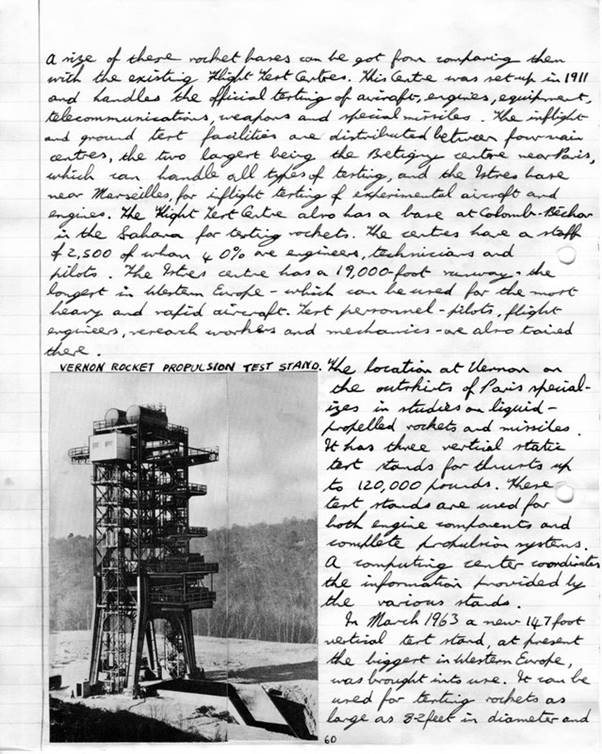 A size of these rocket bases can be got from comparing then
with the existing Flight Test Centres. This Centre was set up in 1911
and handles the official testing of aircraft, engines, equipment,
telecommunications, weapons and special missiles. The inflight
and ground test facilities are distributed between four main
centres, the two largest being the Bretigny centre near Paris,
which can handle all types of testing, and the Istres base
near Marseilles, for inflight testing of experimental aircraft and
engines. The Flight Test Centre also has a base at Colomb-Béchar
in the Sahara for testing rockets. The centres have a staff
of 2,500 of whom 40% are engineers, technicians and
pilots. The Istres centre has a 19,000-foot runway - the
longest in Western Europe - which can be used for the most
heavy and rapid aircraft. Test personnel - pilots, flight
engineers, research workers and mechanics - are also trained
there.
VERNON ROCKET PROPULSION TEST STAND.
The location at Vernon on
the outskirts of Paris special-
izes in studies on liquid-
propelled rockets and missiles.
It has three vertical static
test stands for thrusts up
to 120,000 pounds. These
test stands are used for
both engine components and
complete propulsion systems.
A computing center coordinates
the information provided by
the various stands.
In March 1963 a new 147 foot
vertical test stand, at present
the biggest in Western Europe,
was brought into use. It can be
used for testing rockets as
large as 82 feet in diameter and
60